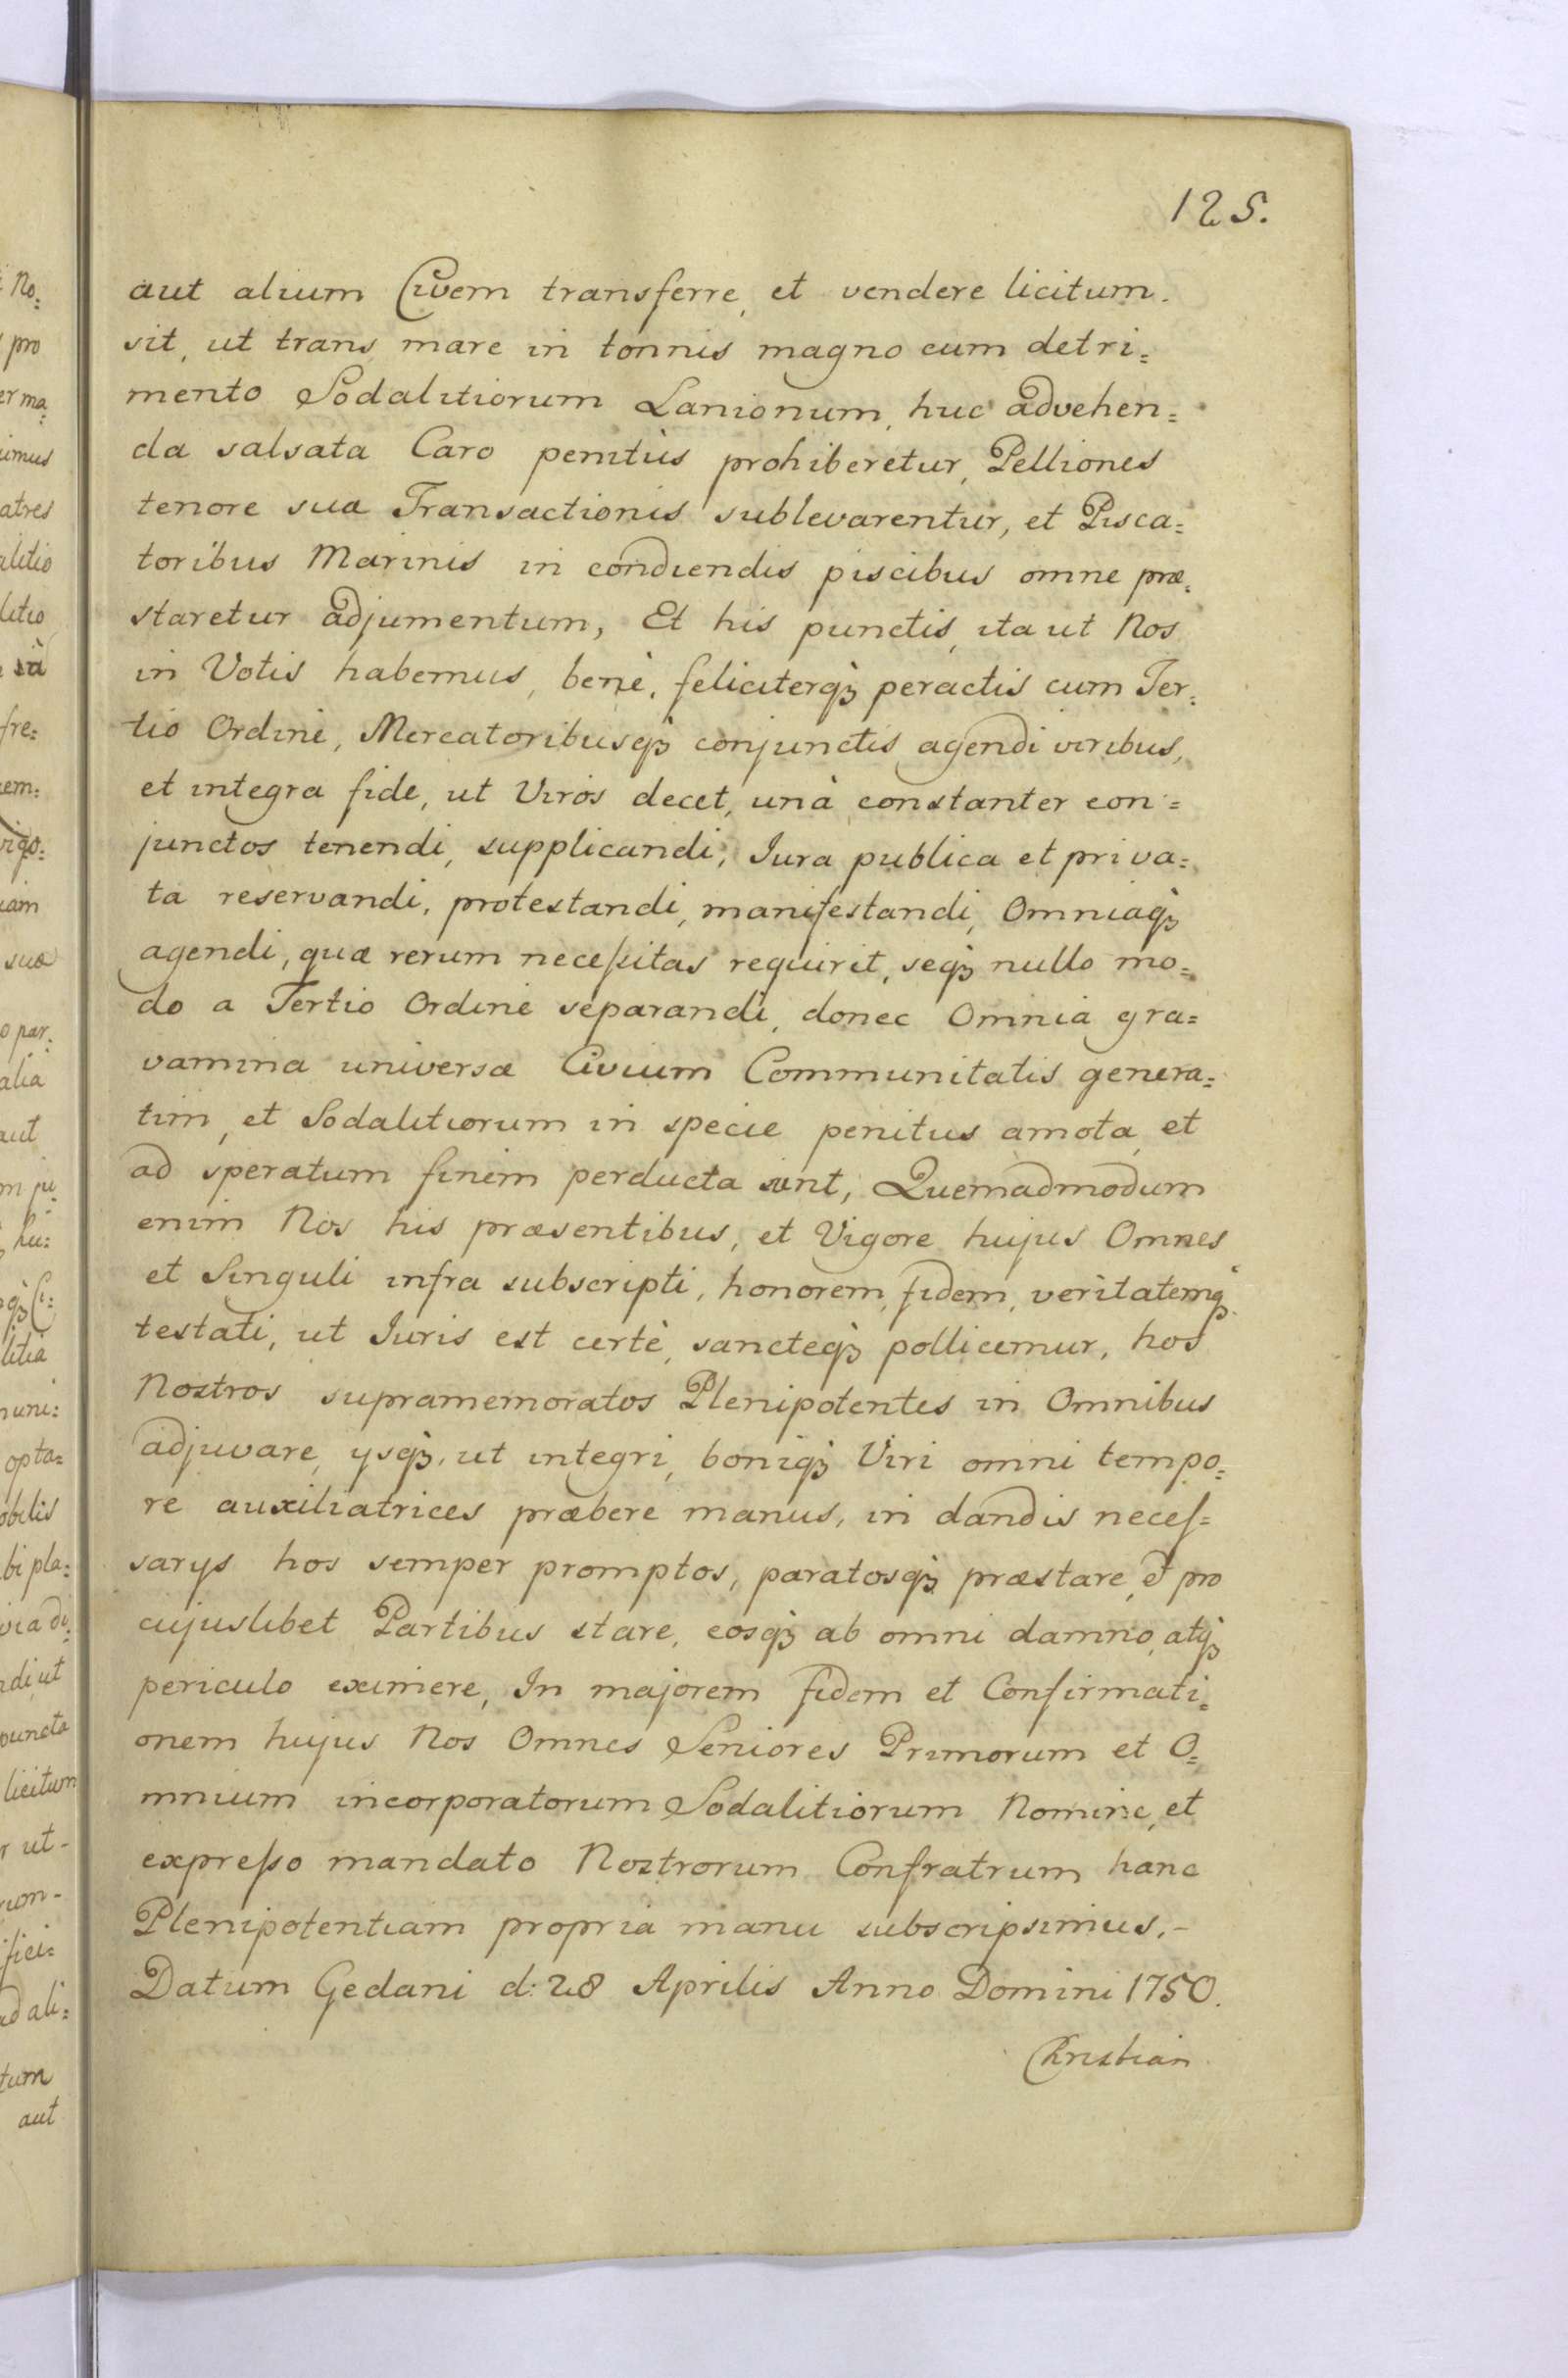 125.
aut alium Civem transferre, et vendere licitum.
sit, ut trans mare in tonnis magno cum detri=
mento Sodalitiorum Lanionum, huc advehen=
da salsata Caro penitùs prohiberetur, Pelliones
tenore suæ Transactionis sublevarentur, et Pisca=
toribus Marinis in condiendis piscibus omne præ=
staretur adjumentum, Et his punctis, ita ut Nos
in Votis habemus, benè, feliciterq̀ꝫ peractis cum Ter=
tio Ordine, Mercatoribusq̀ꝫ conjunctis agendi viribus,
et integra fide, ut Viros decet, unà constanter con=
junctos tenendi, supplicandi, Jura publica et priva=
ta reservandi, protestandi, manifestandi, Omniaq̀ꝫ
agendi, quæ rerum neceſsitas requirit, seq̀ꝫ nullo mo=
do a Tertio Ordine separandi, donec Omnia gra=
vamina universæ Civium Communitatis genera=
tim, et Sodalitiorum in specie penitus amota, et
ad speratum finem perducta sint, Quemadmodum
enim Nos his præsentibus, et Vigore hujus Omnes
et Singuli infra subscripti, honorem, fidem, veritatemq̀ꝫ
testati, ut Juris est certè, sancteq̀ꝫ pollicemur, hos
Nostros supramemoratos Plenipotentes in Omnibus
adjuvare, ysq̀ꝫ, ut integri, boniq̀ꝫ Viri omni tempo=
re auxiliatrices præbere manus, in dandis neceſ=
sarys hos semper promptos, paratosq̀ꝫ præstare, et pro
cujuslibet Partibus stare, eosq̀ꝫ ab omni damno, atq̀ꝫ
periculo eximere, In majorem fidem et Confirmati=
onem hujus Nos Omnes Seniores Primorum et O=
mnium incorporatorum Sodalitiorum Nomine, et
expreſso mandato Nostrorum Confratrum hanc
Plenipotentiam propria manu subscripsimus.-
Datum Gedani d: 28 Aprilis Anno Domini 1750.
Christian